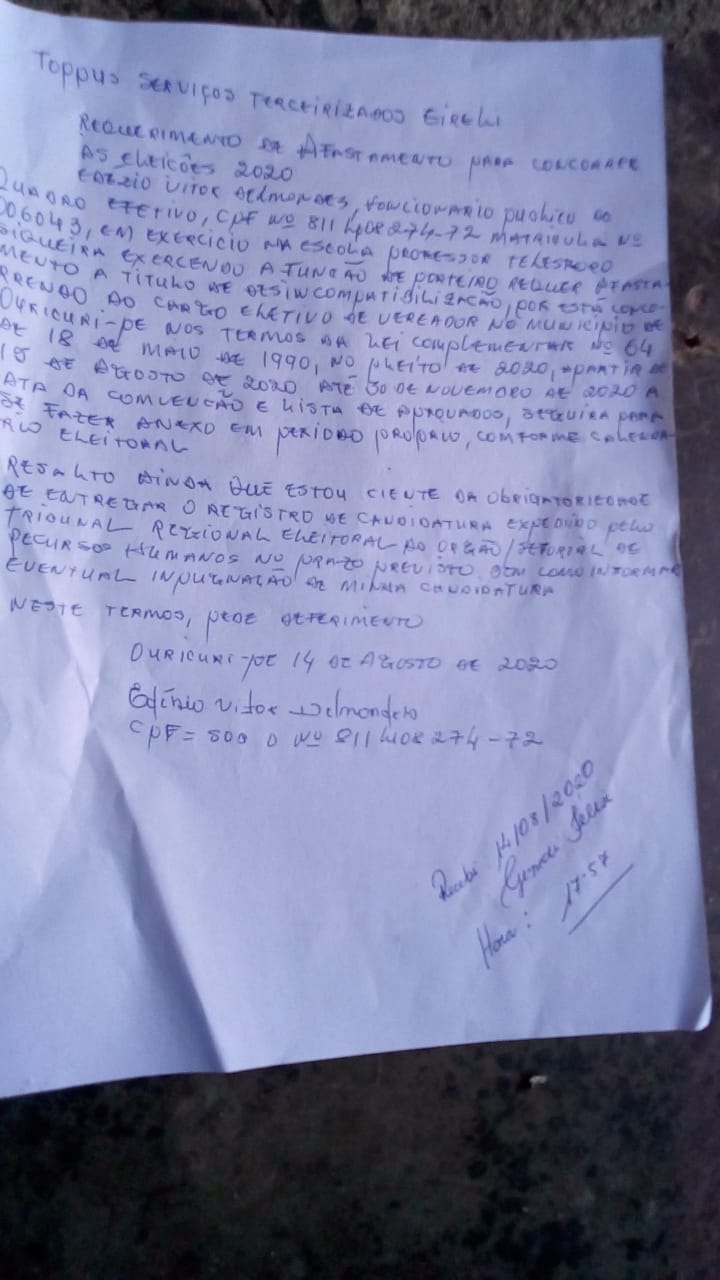 TOPPUS SERVIÇOS TERCEIRIZADOS EIRELI
REQUERIMENTO DE AFASTAMENTO PARA CONCORRER
AS ELEIÇÕES 2020
VITOR DELMONDES, FUNCIONARIO PUBLICO DO
QUADRO EFETIVO, CPF Nº 811408274-72 MATRICULA Nº
006043, EM EXERCICIO NA ESCOLA PROFESSOR TELESFORO
SIQUEIRA EXERCENDO A FUNÇÃO DE PORTEIRO REQUER AFASTA-
MENTO A TITULO DE DESINCOMPATIBILIZAÇÃO, POR ESTÁ CONCO-
RRENDO AO CARGO ELETIVO DE VEREADOR NO MUNICIPIO DE
OURICURI-PE NOS TERMOS DA LEI COMPLEMENTAR Nº 64
DE 18 DE MAIO DE 1990, NO PLEITO DE 2020, APARTIR DE
15 DE AGOSTO DE 2020 ATÉ 30 DE NOVEMBRO DE 2020 A
ATA DA CONVENÇÃO E LISTA DE APROVADOS, SEGUIRA PARA
SE FAZER ANEXO EM PERIODO PROPRIO, COMFORME CALENDA-
RIO ELEITORAL
RESALTO AINDA QUE ESTOU CIENTE DA OBRIGATORIEDADE
DE ENTREGAR O REGISTRO DE CANDIDATURA EXPEDIDO PELO
TRIBUNAL REGIONAL ELEITORAL AO ORGÃO/SETORIAL DE
RECURSOS HUMANOS NO PRAZO PREVISTO BEM COMO INFORMAR
EVENTUAL INPUGNAÇÃO DE MINHA CANDIDATURA
NESTE TERMOS, PEDE DEFERIMENTO
OURICURI-PE 14 DE AGOSTO DE 2020
Vitor Delmondes
CPF = SOB O Nº 811408274-72
Recebi 14/08/2020
Felix
Hora: 17:57